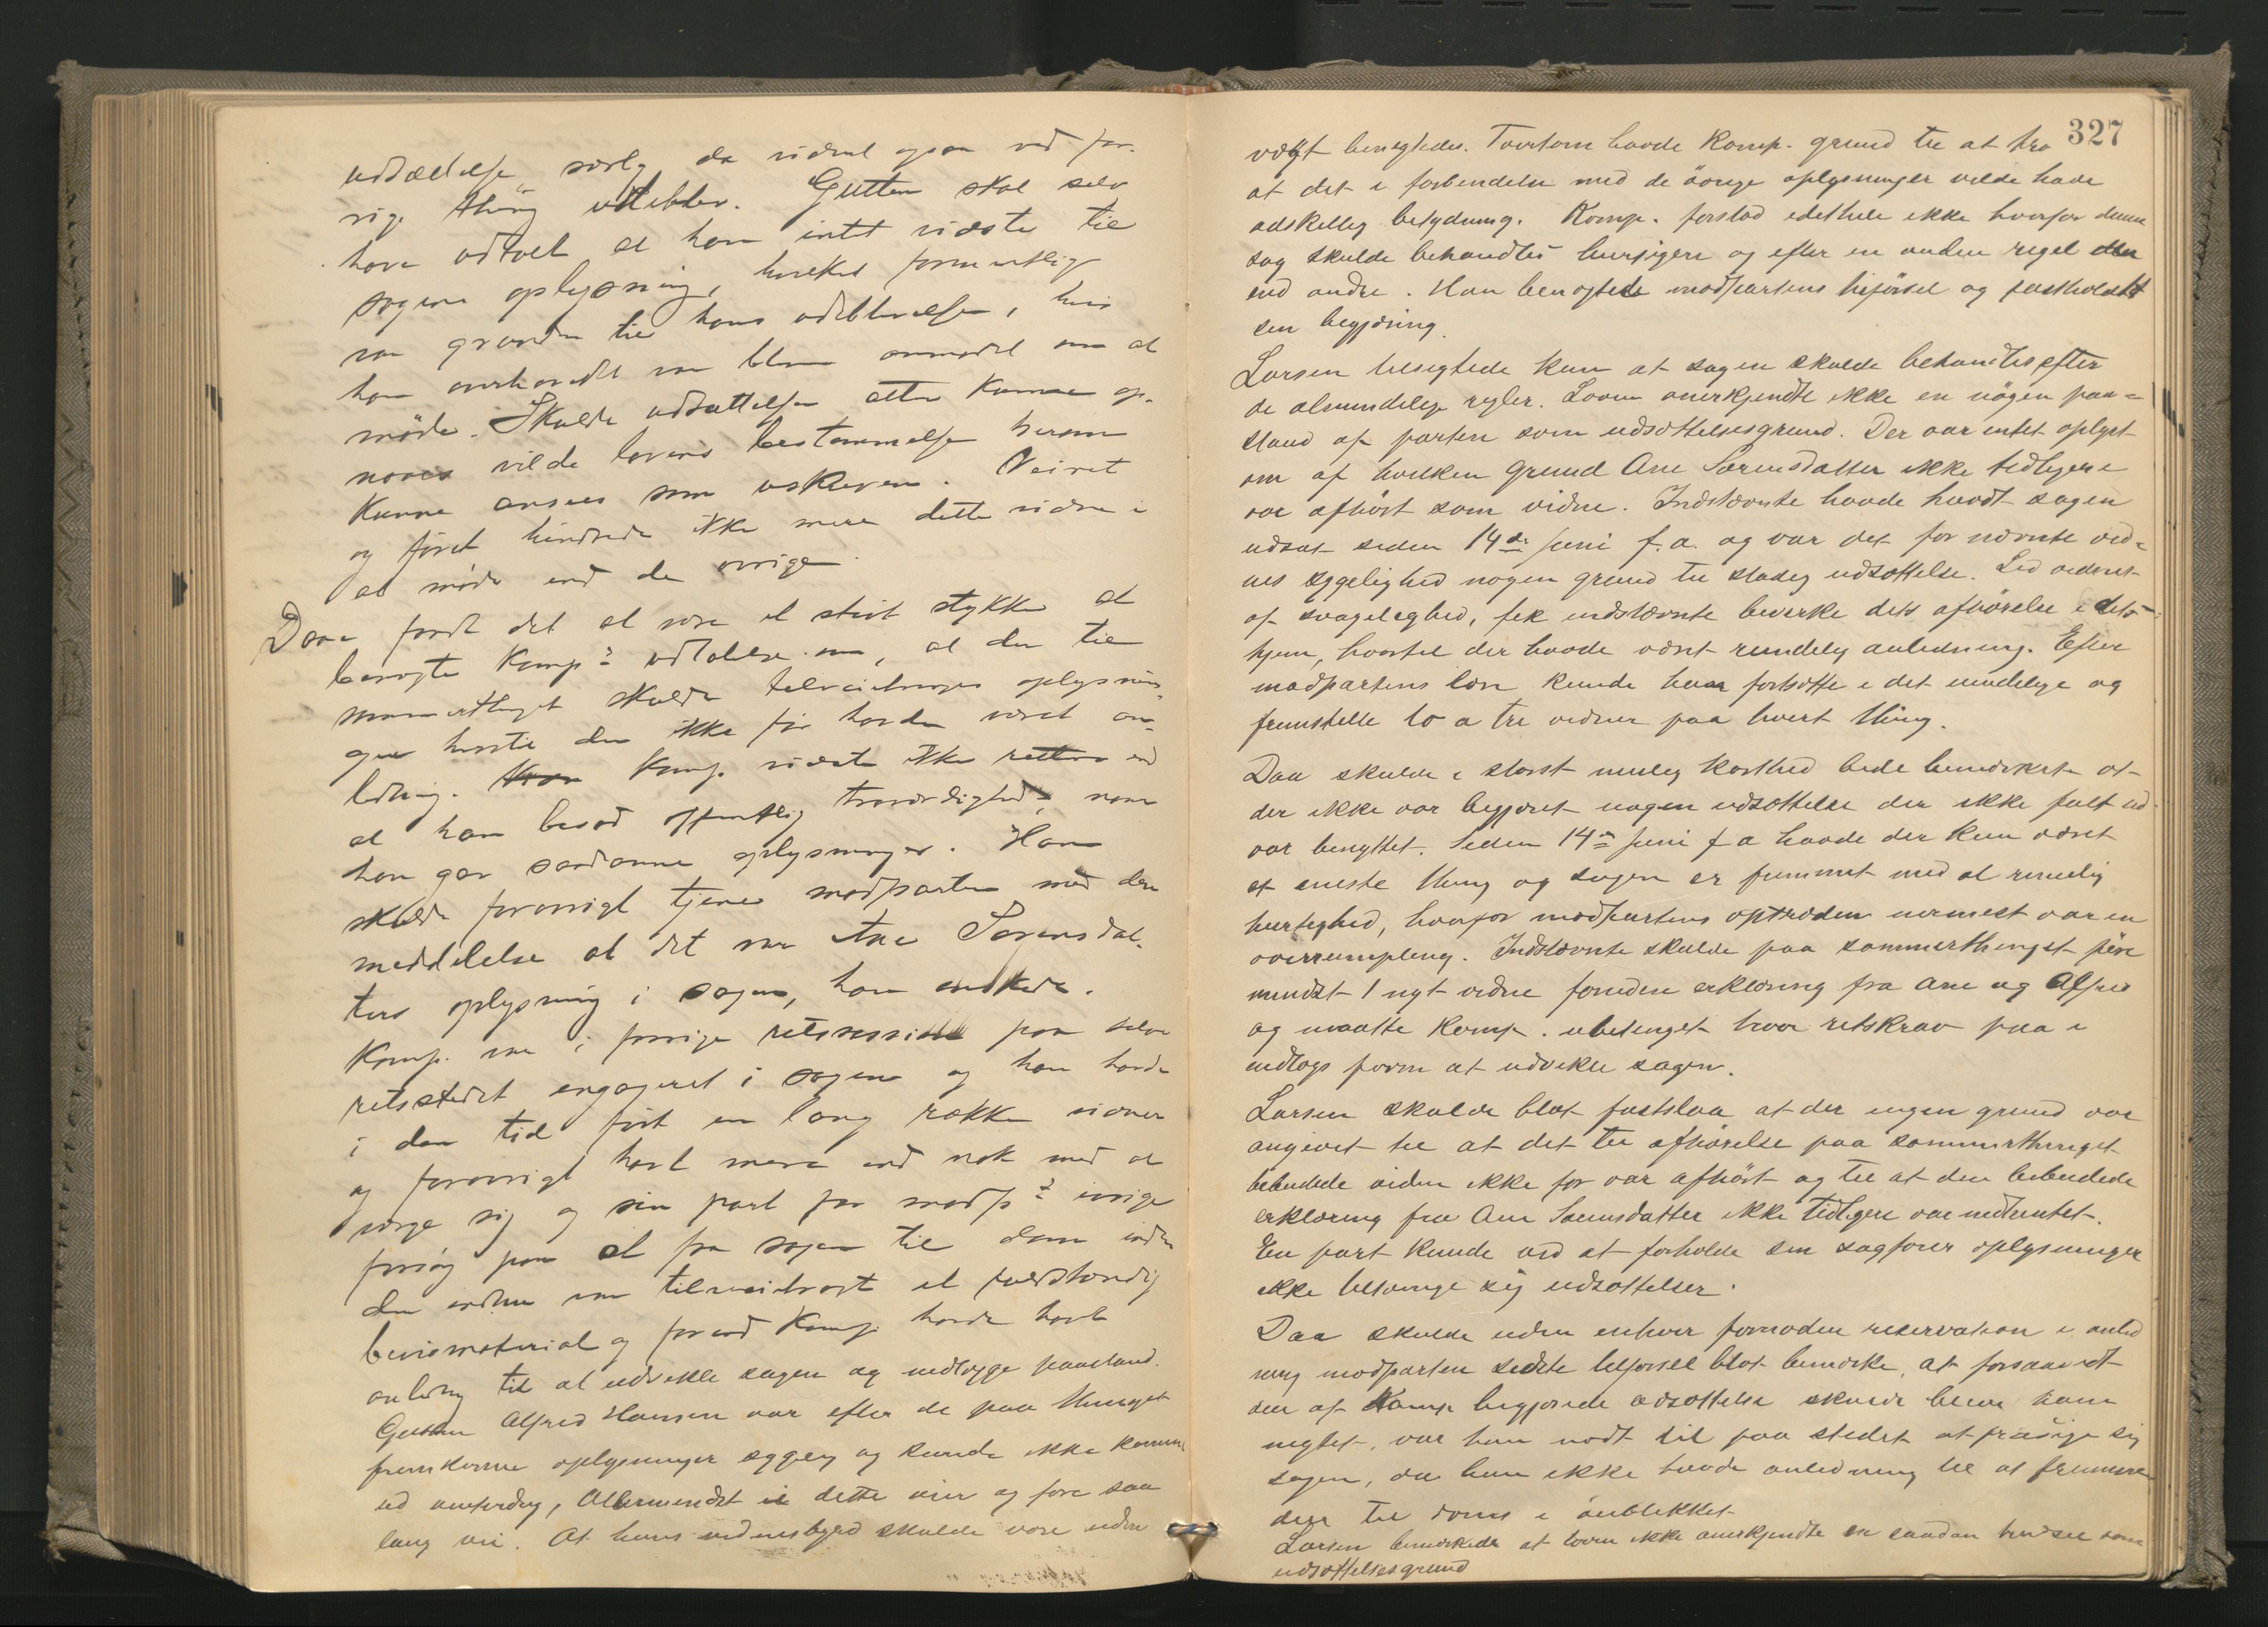 udsættelse særlig da vidnet ogsaa ved for-
rige thing udeblev. Gutten skal selv
have udtalt at han intet vidste til
sagens oplysning, hvilket formentlig
var grunden til hans udeblivelse, hvis
han overhovedet var bleven anmodet om at
møde. Skulde udsættelse atter kunne op-
naaes vilde lovens bestemmelse herom
kunne ansees som uskreven. Veiret
og føret hindrede ikke mere dette vidne i
at møde end de øvrige.
Daae fandt det at være et stivt stykke at
benegte Komp.s udtalelse om, at der til
sommerthinget skulde tilveiebringes oplysnin-
ger hvortil der ikke før havde været an-
ledning. Komp. vidste ikke rettere end
at han besad offentlig troværdighed, naar
han gav saadanne oplysninger. Han
skulde forøvrigt tjene modparten med den
meddelelse at det var Ane Sørensdat-
ters oplysning i sagen, han ønskede.
Komp. var i forrige retssession paa selve
retsstedet engageret i sagen og han havde
i den tid ført en lang række vidner
og forøvrigt havt mere end nok med at
værge sig og sin part for modp.s ivrige
forsøg paa at faa sagen til doms inden
der endnu var tilveiebragt et fuldstændig
bevismaterial og forend Komp. havde havt
anledning til at udvikle sagen og nedlægge paastand.
Gutten Alfred Hansen var efter de paa thinget
fremkomne oplysninger sygelig og kunde ikke komme
ud vinterdag, allermindst i dette veir og fore saa
lang vei. At hans vidnesbyrd skulde være uden
327
vægt benegtedes. Tvertom havde Komp. grund til at tro
at det i forbindelse med de øvrige oplysninger vilde have
adskillig betydning. Komp. forstod idethele ikke hvorfor denne
sag skulde behandles hurtigere og efter en anden regel
end andre. Han benegtede modpartens tilførsel og fastholdt
sin begjæring.
Larsen benegtede kun at sagen skulde behandles efter
de almindelige regler. Loven anerkjendte ikke en nøgen paa-
stand af parten som udsættelsesgrund. Der var intet oplyst
om af hvilken grund Ane Sørensdatter ikke tidligere
var afhørt som vidne. Indstævnte havde havt sagen
udsat siden 14de juni f.a. og var det for nævnte vid-
nes sygelighed nogen grund til stadig udsættelse. Led vidnet
af svagelighed, fik indstævnte bevirke dets afhørelse i dets
hjem, hvortil der havde været rundelig anledning. Efter
modpartens lære kunde han fortsætte i det uendelige og
fremstille to a tre vidner paa hvert thing.
Daa skulde i størst mulig korthed bede bemærket at
der ikke var begjæret nogen udsættelse der ikke fult ud
var benyttet. Siden 14de juni f a havde der kun været
et eneste thing og sagen er fremmet med al rimelig
hurtighed, hvorfor modpartens optræden nærmest var en
overrumpling. Indstævnte skulde paa sommerthinget føre
mindst 1 nyt vidne foruden erklæring fra Ane og Alfred
og maatte Komp. ubetinget have retskrav paa i
indlægs form at udvikle sagen.
Larsen skulde blot fastslaa at der ingen grund var
angivet til at det til afhørelse paa sommerthinget
bebudede vidne ikke før var afhørt og til at den bebudede
erklæring fra Ane Sørensdatter ikke tidligere var indhentet.
En part kunde ved at forholde sin sagfører oplysninger
ikke tiltvinge sig udsættelser.
Daa skulde uden enhver fornøden reservation i anled
ning modparten sidste tilførsel blot bemærke, at forsaavidt
den af Komp. begjærede udsættelse skulde blive ham
negtet, var han nødt til paa stedet at frasige sig
sagen, da han ikke havde anledning til at fremme
den til doms i øieblikket.
Larsen bemærkede at loven ikke anerkjendte en saadan trudsel som
udsættelsesgrund